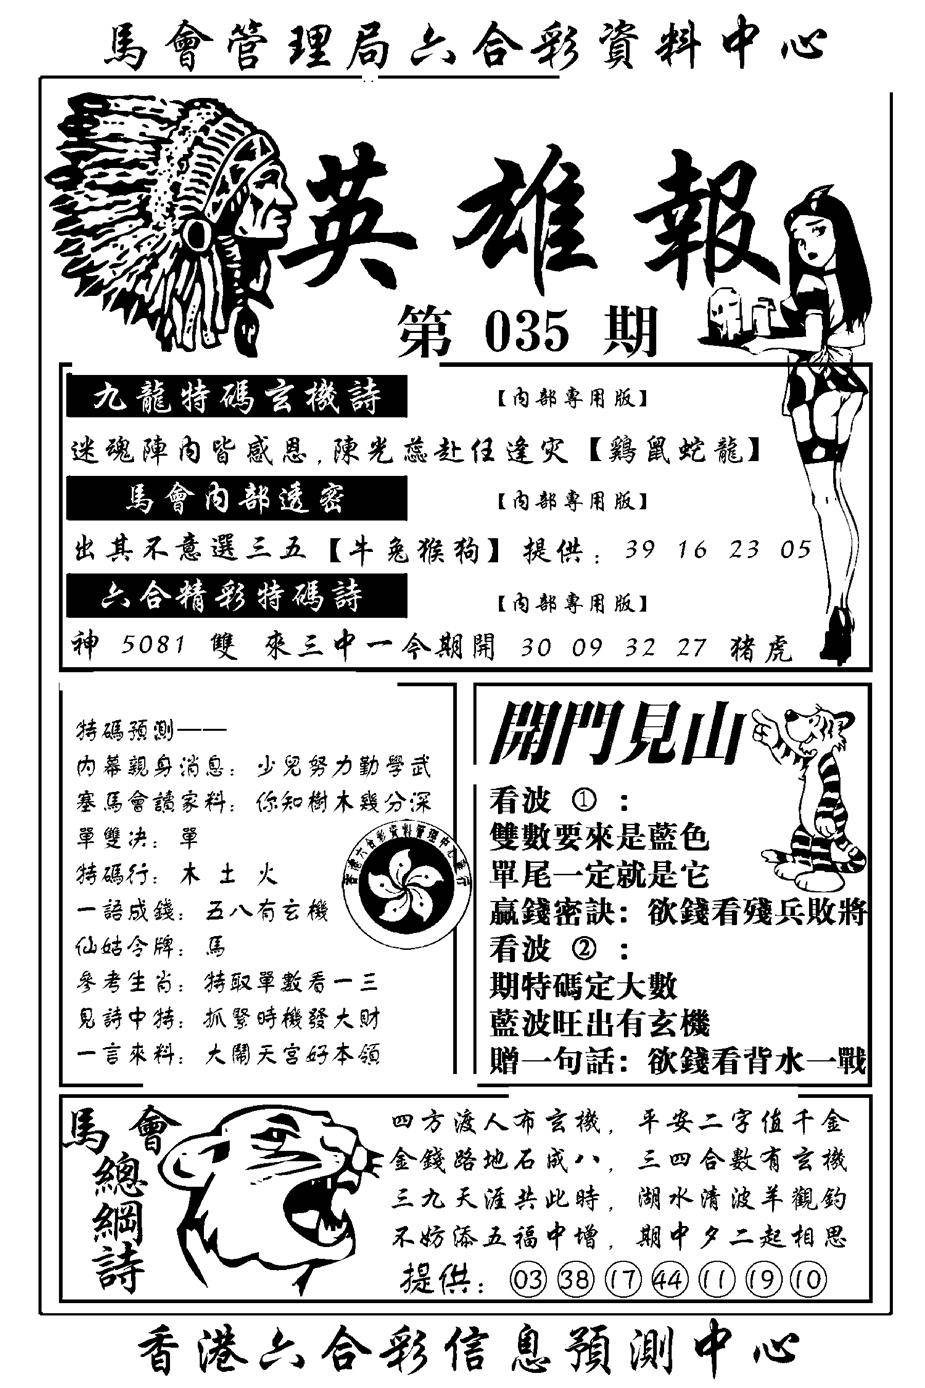 馬會管理局六合彩資料中心
英雄報
第 035 期
九龍特碼玄機詩 【內部專用版】
迷魂陣內皆感恩,陳光蕊赴任逢灾【鷄鼠蛇龍】
馬會內部透密 【內部專用版】
出其不意選三五【牛兔猴狗】 提供: 39 16 23 05
六合精彩特碼詩 【內部專用版】
神 5081 雙 來三中一今期開 30 09 32 27 猪虎
特碼預測——
內幕親身消息: 少兒努力勤學武
塞馬會讀家料: 你知樹木幾分深
單雙决: 單
特碼行: 木 土 火
一語成錢: 五八有玄機
仙姑令牌: 馬
參考生肖: 特取單數看一三
見詩中特: 抓緊時機發大財
一言來料: 大鬧天宮好本領
開門見山
看波 ① :
雙數要來是藍色
單尾一定就是它
贏錢密訣: 欲錢看殘兵敗將
看波 ② :
期特碼定大數
藍波旺出有玄機
贈一句話: 欲錢看背水一戰
馬會
總綱詩
四方渡人布玄機, 平安二字值千金
金錢路地石成八, 三四合數有玄機
三九天涯共此時, 湖水清波羊觀鈞
不妨添五福中增, 期中夕二起相思
提供: 03 38 17 44 11 19 10
香港六合彩信息預測中心